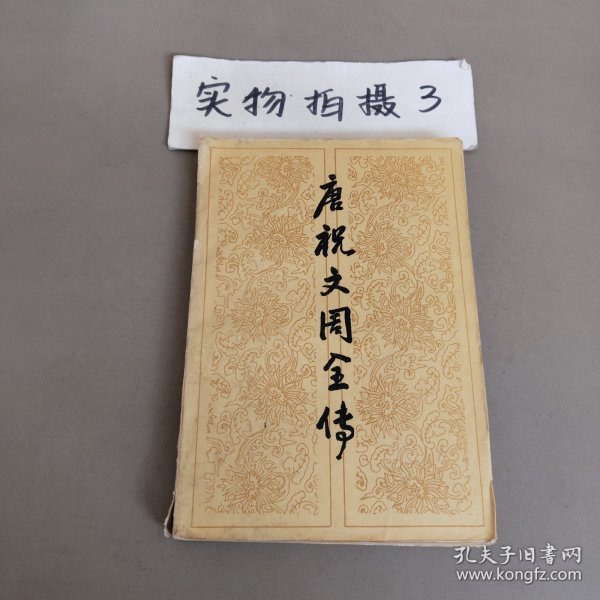 实物拍摄3
唐祝文周全传
孔夫子旧书网
www.kongfz.com